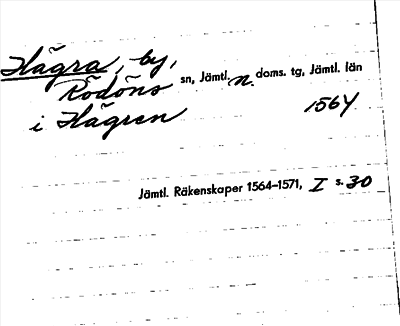 Hägra, by,
Rödöns sn, Jämtl. n. doms. tg, Jämtl. län
i Hägren 1564
Jämtl. Räkenskaper 1564-1571, I s. 30